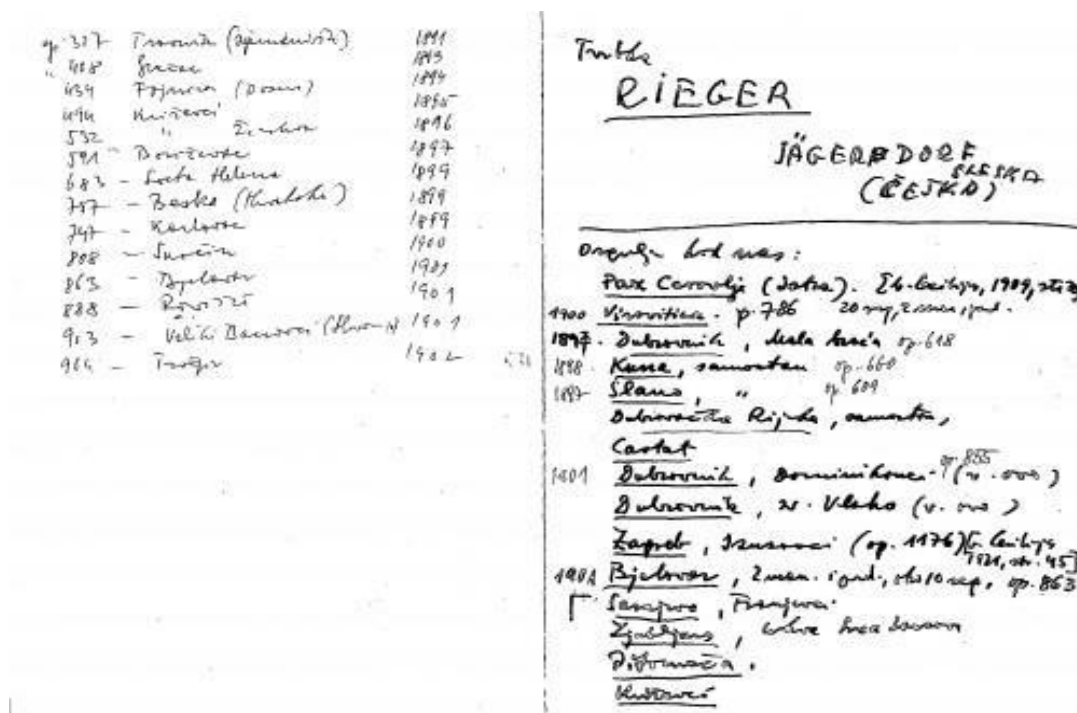 op. 327 Travnik (sjemenište) 1891
" 408 1893
434 Fojnica (Bosna) 1894
494 Križevci 1895
532 " Ž. crkva 1896
591 - 1897
683 - Sveta Helena 1899
737 - Beška (Hrvatska) 1899
747 - Karlovac 1899
808 - Surčin 1900
863 - Bjelovar 1901
888 - 1901
913 - Veliki 1901
964 - Trogir 1902
Tvrtka
RIEGER
JÄGERNDORF
SLESKA
(ČEŠKA)
Orgulje kod nas:
Pax Cerovlje (Istra). Sv. Cecilija, 1909, str.
1900 Virovitica. p. 786 20 reg, 2 man, i ped.
1897. Dubrovnik, Mala braća op. 618
1898. Kuna, samostan op. 660
1897 Slano, " op. 609
Dubrovačka Rijeka, samostan,
Cavtat
1901 Dubrovnik, Dominikanci op. 855 (v. ovo)
Dubrovnik, sv. Vlaho (v. ovo)
Zagreb, Isusovci (op. 1176) [Sv. Cecilija
1921, str. 45]
1901 Bjelovar, 2 man. i ped., oko 10 reg, op. 863
Sarajevo, Franjevci
Ljubljana, crkva Srca Isusova
Pitomača.
Križevci